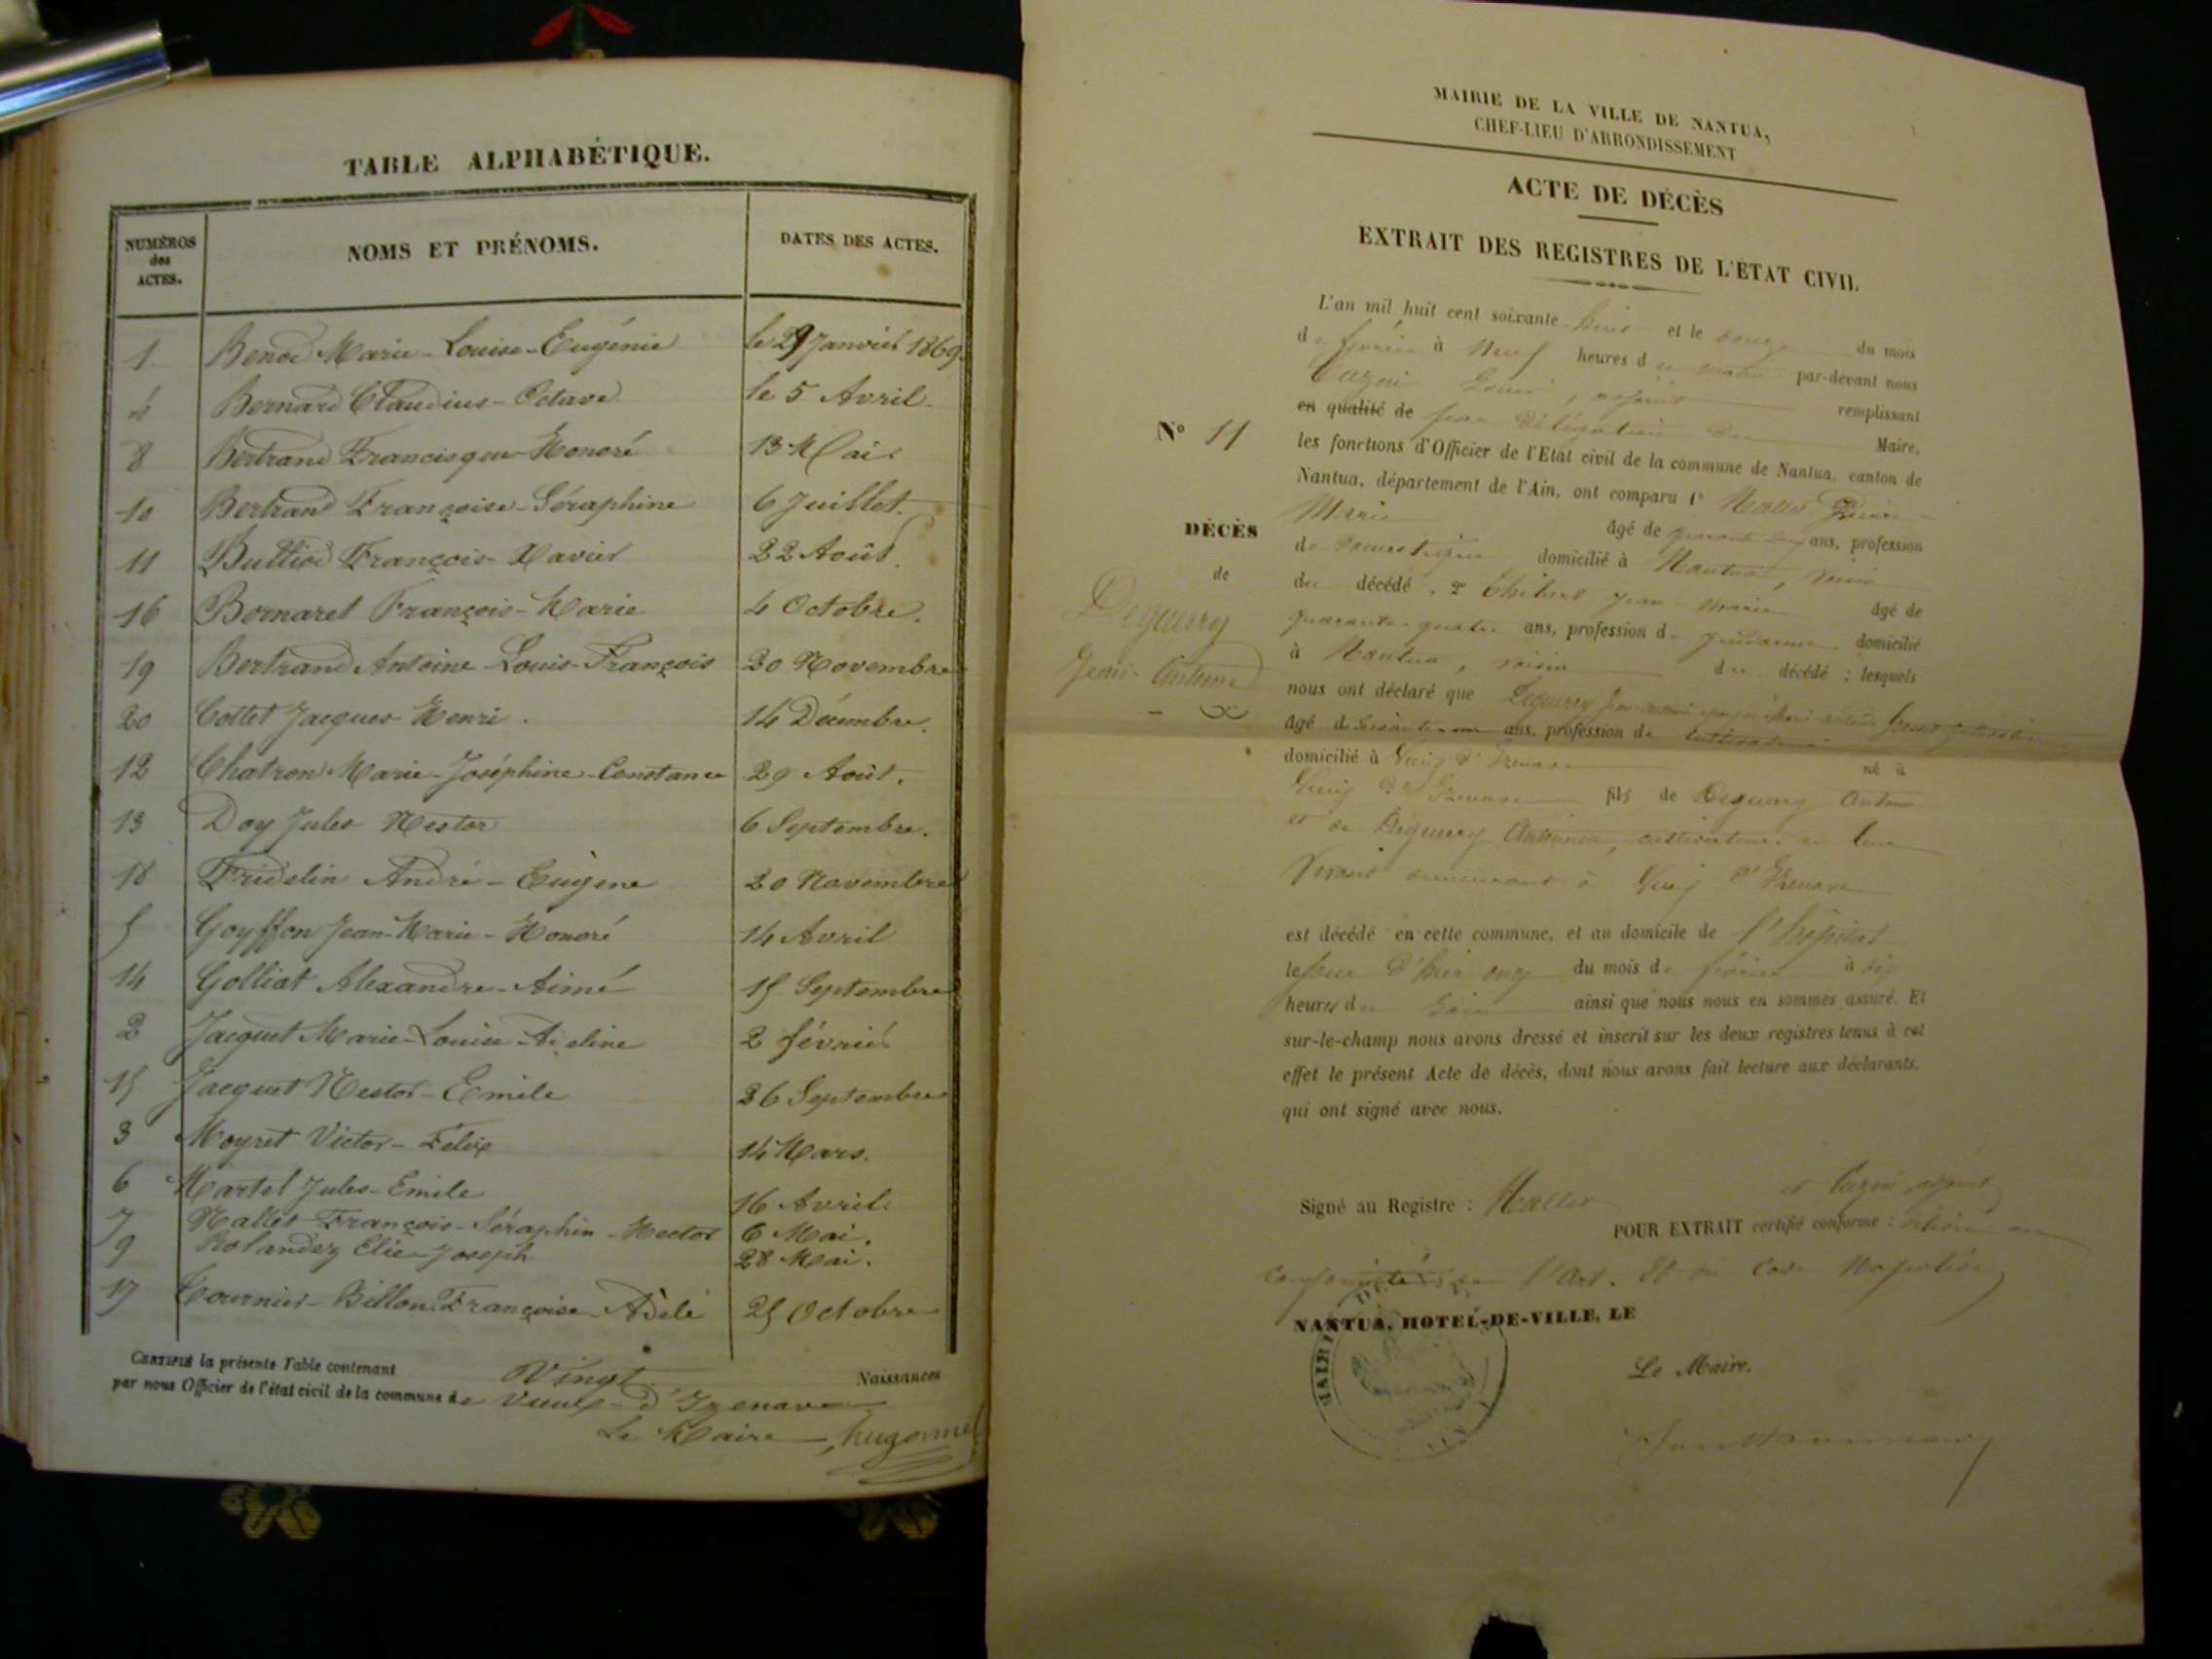 TABLE ALPHABÉTIQUE.
NUMÉROS des ACTES.
NOMS ET PRÉNOMS.
DATES DES ACTES.
1. Benoi Marie-Louise-Eugénie le 29 Janvier 1869.
4 Bernard Claudius-Octave le 5 Avril.
8 Bertrand Francisque-Honoré 13 Mai
10 Bertrand Françoise-Séraphine 6 Juillet.
11 Bullioi François-Xavier 22 Août.
16 Bornaret François-Marie 4 Octobre.
19 Bertrand Antoine-Louis-François 20 Novembre
20 Cottet Jacques-Henri. 14 Décembre.
12 Chatron Marie-Joséphine-Constance 29 Août.
13 Doy Jules Nestor 6 Septembre.
18 Fridelin André-Eugène 20 Novembre
5 Goyffon Jean-Marie-Honoré 14 Avril
14 Golliat Alexandre-Aimé 15 Septembre
2 Jacquet Marie-Louise-Adeline 2 février
15 Jacquet Nestor-Emile 26 Septembre
3 Moyret Victor-Félix 14 Mars.
6 Martel Jules-Emile 16 Avril.
7 Nallet François-Séraphin-Hector 6 Mai.
9 Rolandez Elie-Joseph 28 Mai.
17 Tournier-Billon Françoise-Adèle 25 Octobre
CERTIFIÉ la présente Table contenant Vingt Naissances
par nous Officier de l'état civil de la commune de Vieux-d'Izenave
Le Maire, hugonnet
MAIRIE DE LA VILLE DE NANTUA,
CHEF-LIEU D'ARRONDISSEMENT
ACTE DE DÉCÈS
EXTRAIT DES REGISTRES DE L'ÉTAT CIVIL.
N° 11
DÉCÈS
de
Deguerry
Jean-Antoine
L'an mil huit cent soixante-huit et le douze du mois
de février à neuf heures du matin par-devant nous
Louis, adjoint remplissant
en qualité de par délégation du Maire,
les fonctions d'Officier de l'Etat civil de la commune de Nantua, canton de
Nantua, département de l'Ain, ont comparu 1° Nallet
Marie âgé de quarante ans, profession
de domestique domicilié à Nantua, voisin
du décédé, 2° Jean Marie âgé de
quarante-quatre ans, profession de gendarme domicilié
à Nantua, voisin du décédé ; lesquels
nous ont déclaré que Deguerry Jean
âgé de soixante ans, profession de cultivateur
domicilié à Vieux d'Izenave né à
Vieux d'Izenave fils de Deguerry Antoine
et de Deguerry, cultivateurs en leur
vivant demeurant à Vieux d'Izenave
est décédé en cette commune, et au domicile de l'hôpital
le jour d'hier onze du mois de février à dix
heures du soir ainsi que nous nous en sommes assuré. Et
sur-le-champ nous avons dressé et inscrit sur les deux registres tenus à cet
effet le présent Acte de décès, dont nous avons fait lecture aux déclarants,
qui ont signé avec nous.
Signé au Registre : Nallet et adjoint
POUR EXTRAIT certifié conforme : délivré en
conformité de l'Art. 80 du Code Napoléon
NANTUA, HOTEL-DE-VILLE, LE
Le Maire.
MAIRIE